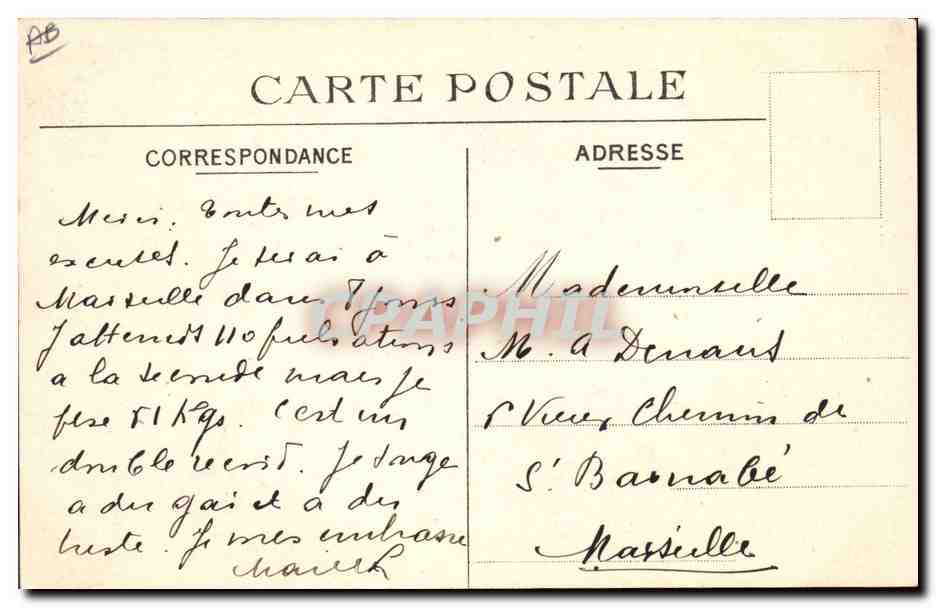 AB
CARTE POSTALE
CORRESPONDANCE
Merci. Toutes mes
excuses. Je serai à
Marseille dans 8 jours.
J'attends 110 pulsations
a la seconde mais je
pese 51 Kgs. C'est un
double record. Je songe
a du gai et a du
triste. Je embrasse
ADRESSE
Mademoiselle
M. A
5 Vieux Chemin de
St Barnabé
Marseille
CPAPHIL